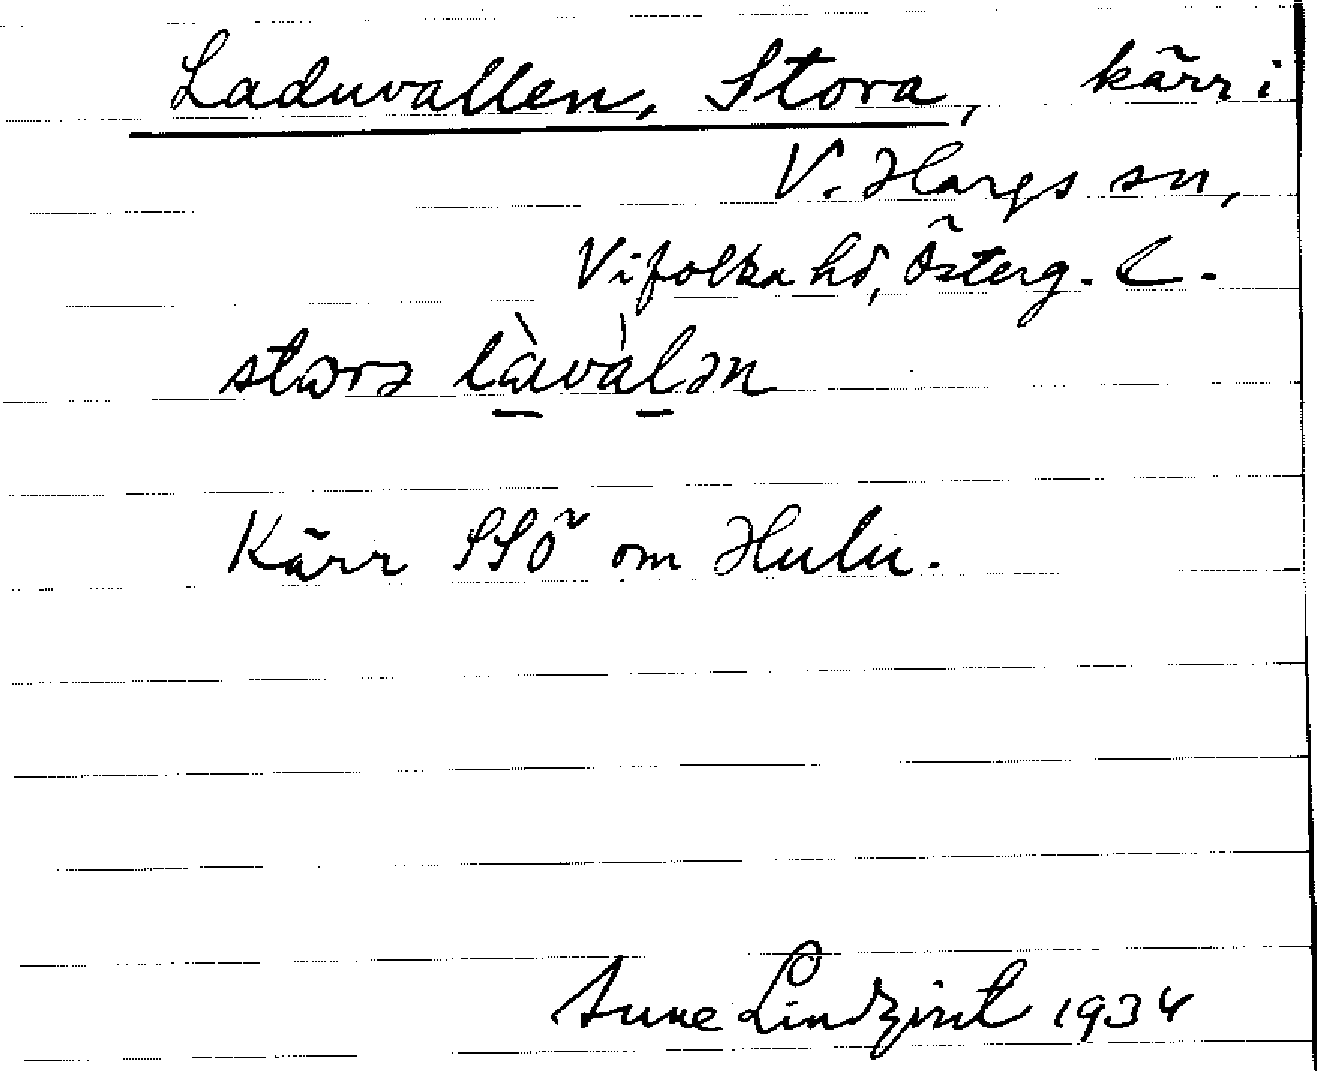 Laduvallen, Stora, kärr i
V. Hargs sn,
Vifolka hd, Österg. L.
storə làvàlən
Kärr SSÖ om Hulu.
Sune Lindqvist 1934